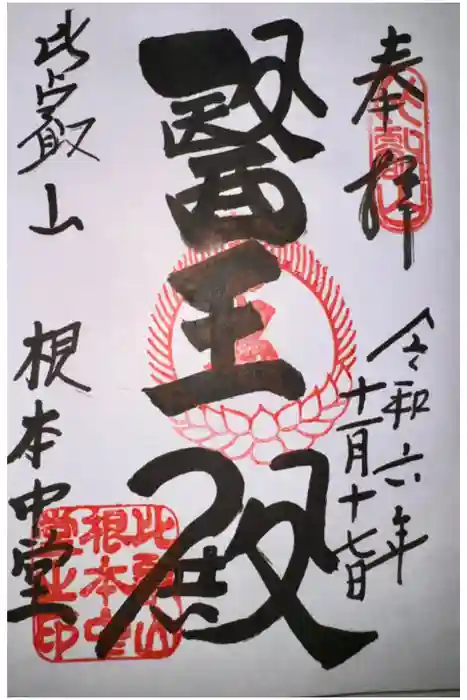 奉拝
令和六年
十一月十七日
醫王殿
比叡山
根本中堂
比叡山
比叡山
根本中
堂之印